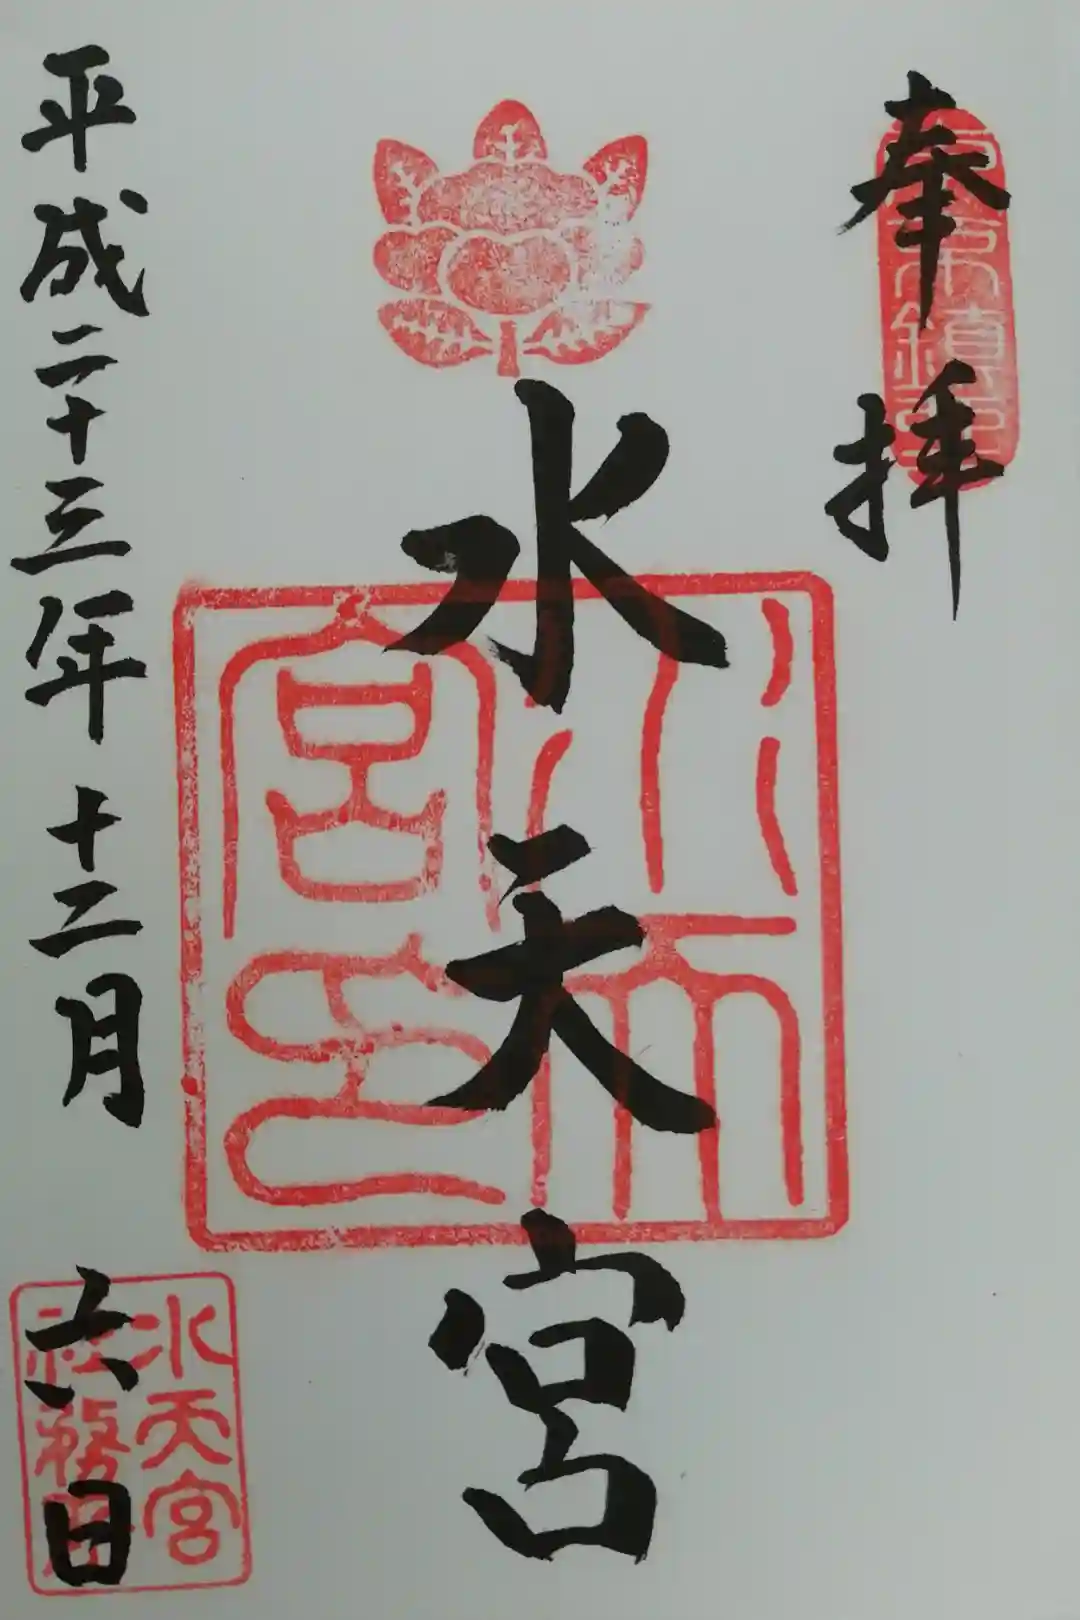 奉拝
水天宮
平成二十三年十二月六日
水天宮印
水天宮
社務所